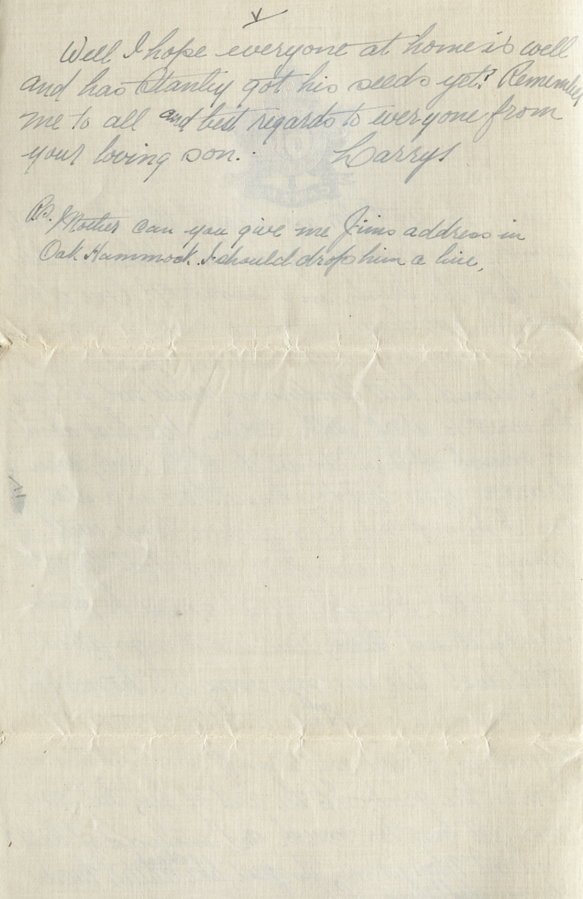 V
Well I hope everyone at home is well
and has Stanley got his seeds yet? Remember
me to all and best regards to everyone from
your loving son. Larry
Ps. Mother can you give me Jims address in
Oak Hammock. I should drop him a line.